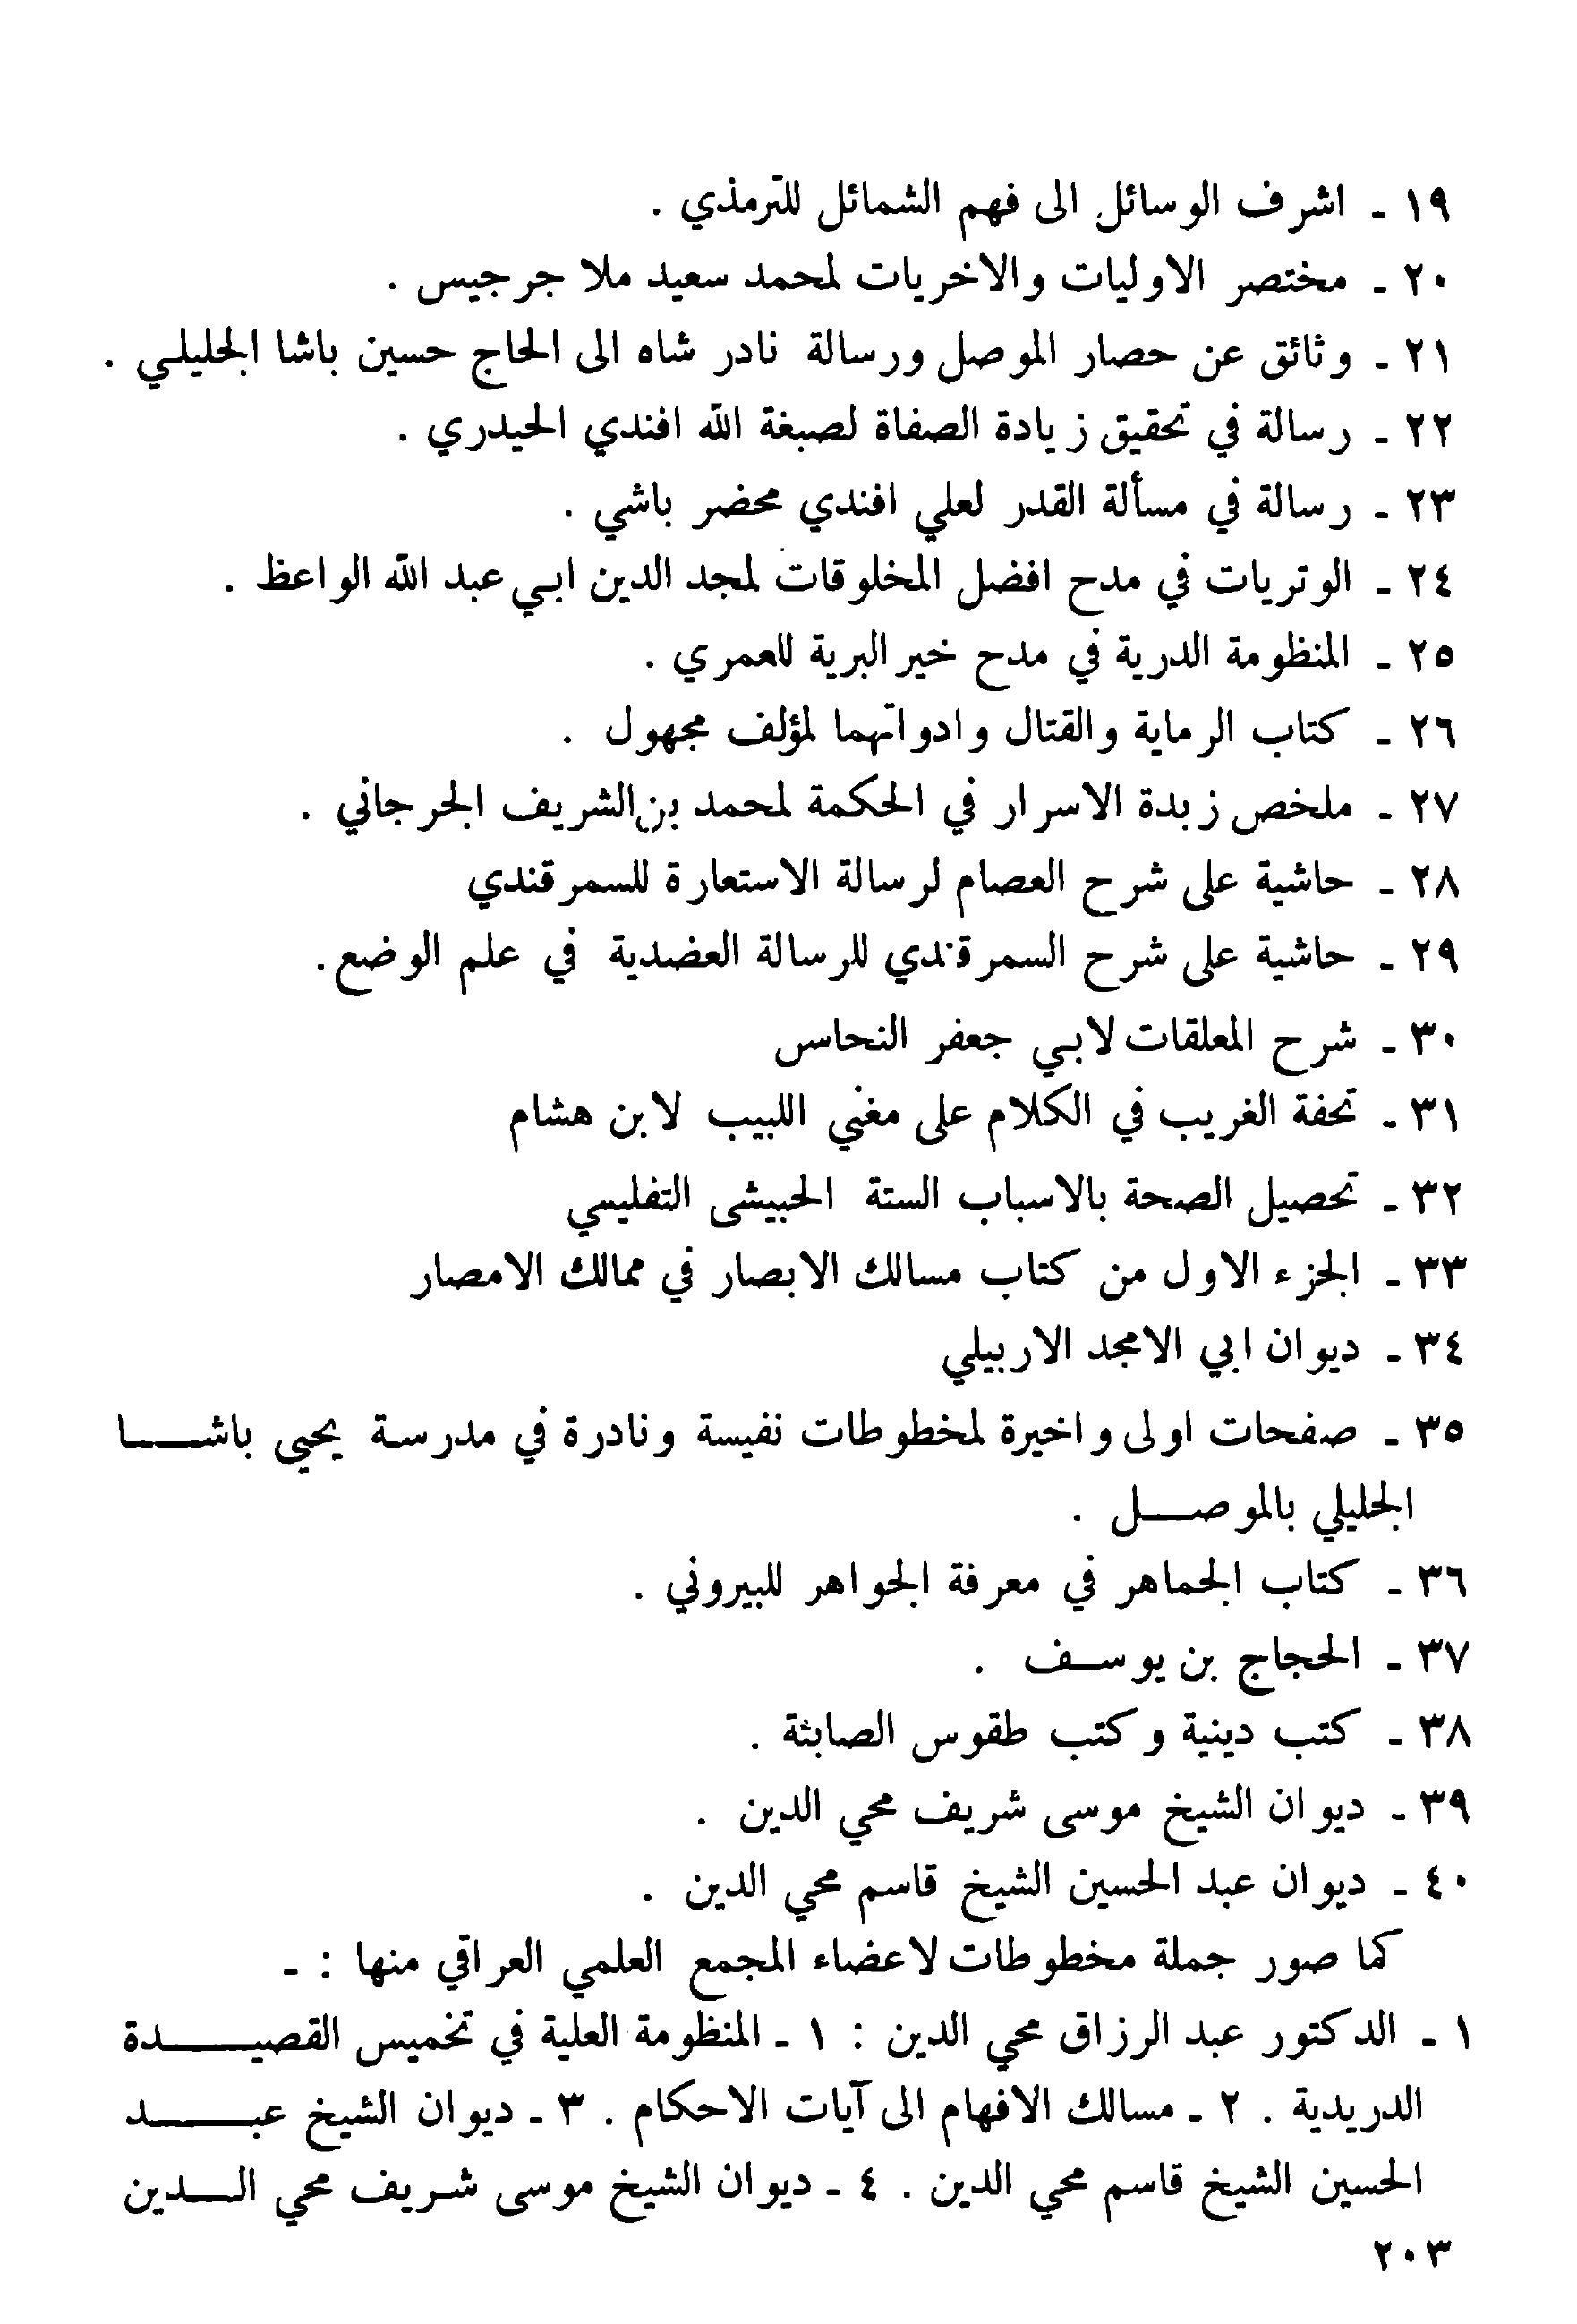 ١٩ ـ اشرف الوسائل الى فهم الشمائل للترمذي .
٢٠ ـ مختصر الاوليات والاخريات لمحمد سعيد ملا جرجيس .
٢١ ـ وثائق عن حصار الموصل ورسالة نادر شاه الى الحاج حسين باشا الجليلي .
٢٢ ـ رسالة في تحقيق زيادة الصفاة لصبغة الله افندي الحيدري .
٢٣ ـ رسالة في مسألة القدر لعلي افندي محضر باشي .
٢٤ ـ الوتريات في مدح افضل المخلوقات لمجد الدين ابي عبد الله الواعظ .
٢٥ ـ المنظومة الدرية في مدح خير البرية للعمري .
٢٦ ـ كتاب الرماية والقتال وادواتهما لمؤلف مجهول .
٢٧ ـ ملخص زبدة الاسرار في الحكمة لمحمد بن الشريف الجرجاني .
٢٨ ـ حاشية على شرح العصام لرسالة الاستعارة للسمرقندي
٢٩ ـ حاشية على شرح السمرقندي للرسالة العضدية في علم الوضع .
٣٠ ـ شرح المعلقات لابي جعفر النحاس
٣١ ـ تحفة الغريب في الكلام على مغني اللبيب لابن هشام
٣٢ ـ تحصيل الصحة بالاسباب الستة الحبيشى التفليسي
٣٣ ـ الجزء الاول من كتاب مسالك الابصار في ممالك الامصار
٣٤ ـ ديوان ابي الامجد الاربيلي
٣٥ ـ صفحات اولى واخيرة لمخطوطات نفيسة ونادرة في مدرسة يحيي باشـــا
الجليلي بالموصـــل .
٣٦ ـ كتاب الجماهر في معرفة الجواهر للبيروني .
٣٧ ـ الحجاج بن يوسـف .
٣٨ ـ كتب دينية وكتب طقوس الصابئة .
٣٩ ـ ديوان الشيخ موسى شريف محي الدين .
٤٠ ـ ديوان عبد الحسين الشيخ قاسم محي الدين .
كما صور جملة مخطوطات لاعضاء المجمع العلمي العراقي منها : ـ
١ ـ الدكتور عبد الرزاق محي الدين : ١ ـ المنظومة العلية في تخميس القصيـــدة
الدريدية . ٢ ـ مسالك الافهام الى آيات الاحكام . ٣ ـ ديوان الشيخ عبـــد
الحسين الشيخ قاسم محي الدين . ٤ ـ ديوان الشيخ موسى شريف محي الـــدين
٢٠٣